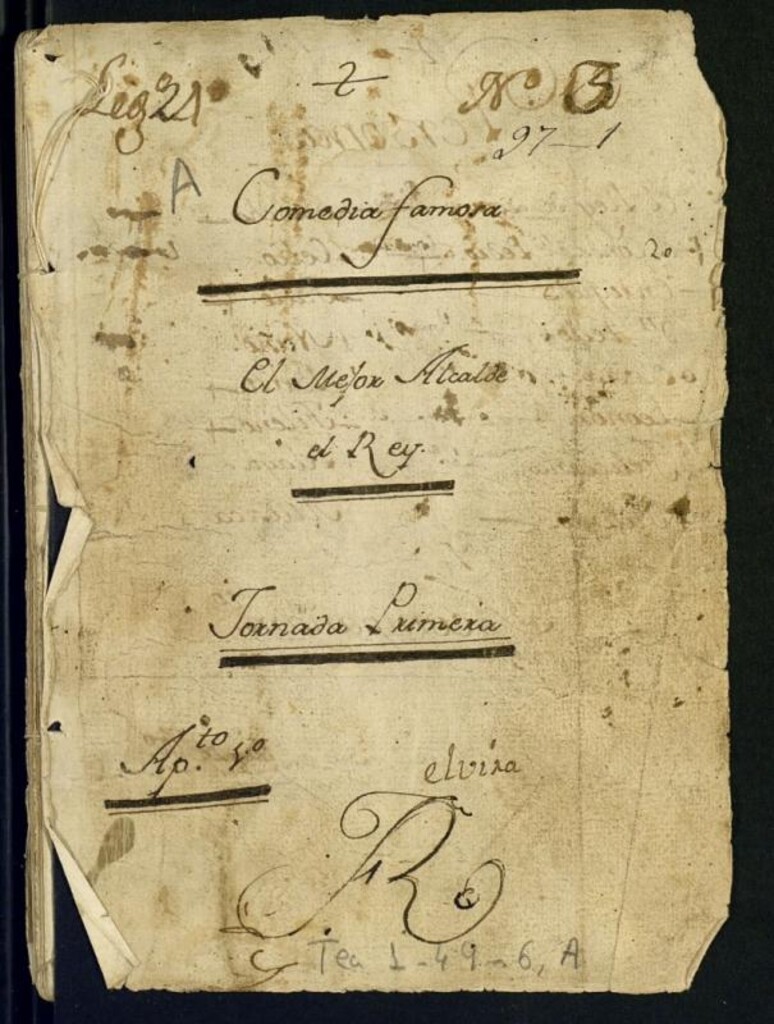 Leg 21
2
N.º 3
97-1
A
Comedia famosa
20
El Mejor Alcalde
el Rey.
Jornada Primera
Ap.to 1.º
elvira
Tea 1-49-6, A